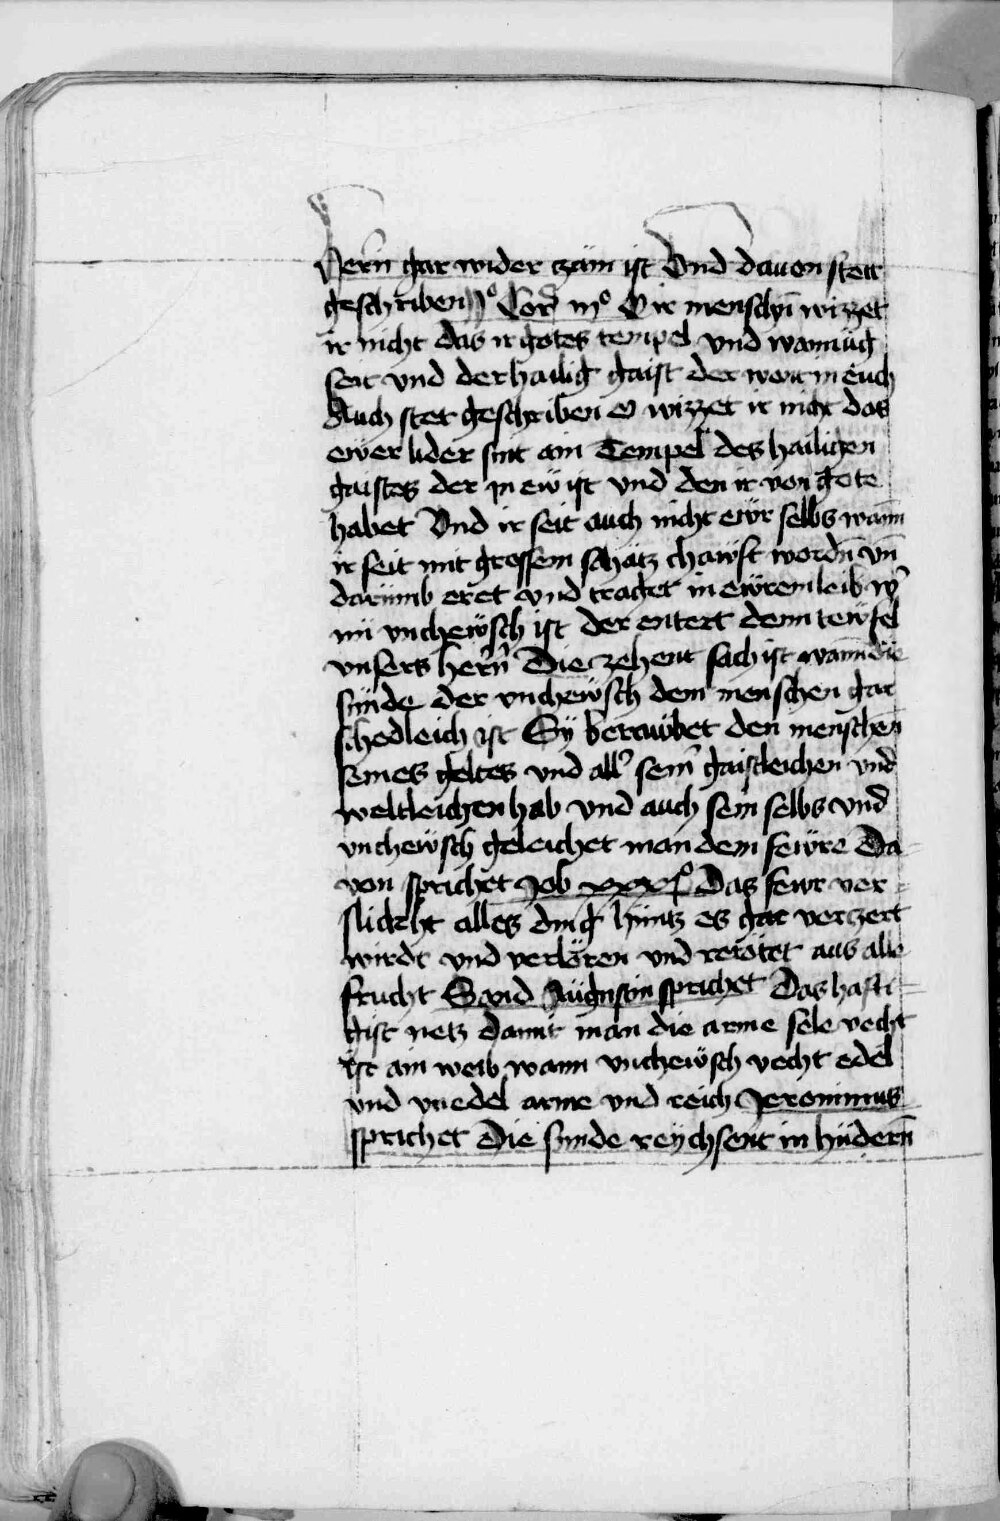 Nern̄ gar wider zäm ist Vnd dauon stett
geschriben jº Cor͛ iijº O ir menschn̄ wizzet
ir nicht das ir gotes tempel vnd
seit vnd der hailig gaist der wont in euch
Auch stet geschriben O wizzet ir nicht das
ewer lider sint ain Tempel des hailigen
gaistes der in ew ist vnd den ir von gote
habet Vnd ir seit auch nicht ewr selbs wann
ir seit mit grossem schatz chawft wordn̄ vn̄
darumb eret vnd traget in ewrem leib w͛
nu vnchewsch ist der entert denn tewfel
vnsers herrn̄ Die zehent sach ist wann die
sunde der vnchewsch dem menschen gar
schedleich ist Sy beraubet den menschen
seines geltes vnd all͛ sein͛ gaistleichen vnd
weltleichen hab vnd auch sein selbs vnd
vnchewsch geleichet man dem fewre Da-
von sprichet Job xxxjº Das fewr ver-
slickcht alles ding hüntz es gar verzert
wirdt vnd verloren vnd retötet aus alle
frucht Sand Augustin sprichet Das hafti-
gist netz damit man die arme sele vecht
ist ain weib wann vnchewsch vecht edel
vnd vnedel arme vnd reich Jeronimus
sprichet Die sunde reychsent in hüdern̄